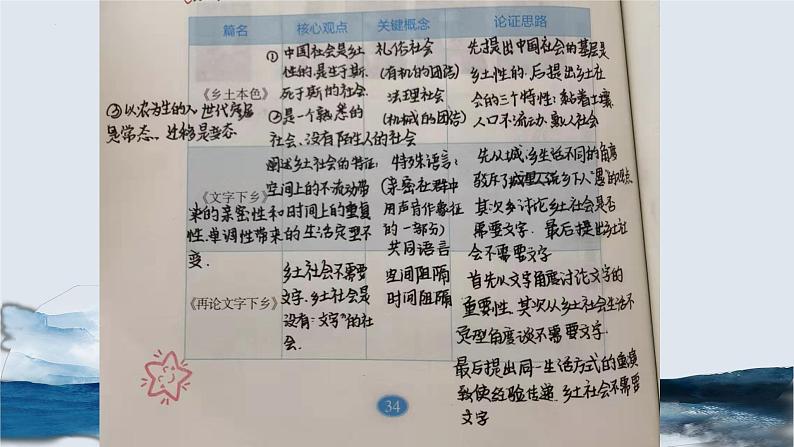 篇名 核心观点 关键概念 论证思路
《乡土本色》
① 中国社会是乡土
性的,是生于斯、
死于斯的社会.
② 是一个熟悉的
社会,没有陌生人的社会
③ 以农为生的人,世代定居
是常态,迁移是变态
礼俗社会
(有机的团结)
法理社会
(机械的团结)
先提出中国社会的基层是
乡土性的,后提出乡土社
会的三个特性:黏着土壤,
人口不流动,熟人社会
《文字下乡》
阐述乡土社会的特征:
空间上的不流动带
来的亲密性和时间上的重复
性、单调性带来的生活定型不
变.
特殊语言:
(亲密社群中
用声音作象征
的一部分)
共同语言
先从城、乡生活不同的角度
驳斥了城里人说乡下人“愚”的观点
其次多讨论乡土社会是否
需要文字. 最后提出乡土社
会不需要文字
《再论文字下乡》
乡土社会不需要
文字,乡土社会是
没有“文字”的社
会.
空间阻隔
时间阻隔
首先以文字角度讨论文字的
重要性,其次从乡土社会生活不
定型角度谈不需要文字.
最后提出同一生活方式的重演
致使经验传递,乡土社会不需要
文字
34